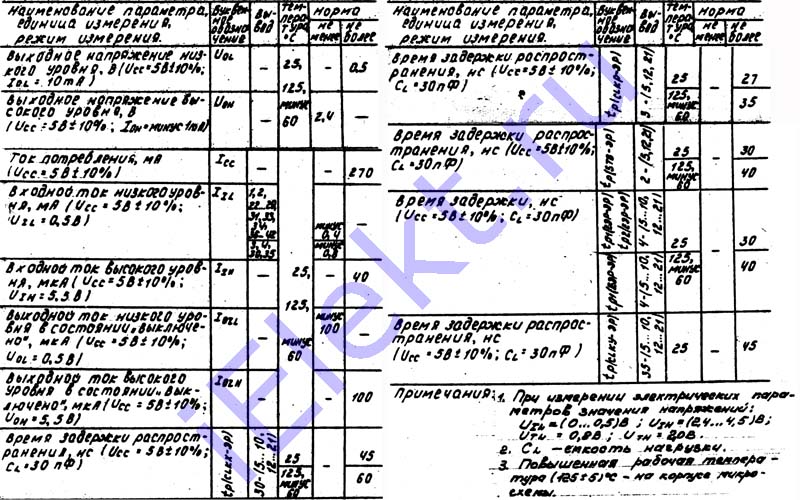 Наименование параметра, единица измерения, режим измерения.
Буквенное обозначение
Вывод
Температура °C
Норма
не менее
не более
Выходное напряжение низкого уровня, В (Ucc=5В±10%; IOL = 10mA)
UOL
—
25,
125,
минус
60
—
0,5
Выходное напряжение высокого уровня, В
(Ucc=5В±10%; IOH=минус 1mA)
UOH
—
2,4
—
Ток потребления, мА
(Ucc=5В±10%)
ICC
—
—
270
Входной ток низкого уровня, мА (Ucc = 5В±10%;
UIL = 0,5В)
IIL
1, 2,
31, 33,
34,
минус
0,4
—
3, 4,
30,35
минус
0,8
Входной ток высокого уровня, мкА (Ucc=5В±10%;
UIH=5,5В)
IIH
—
25,
125,
минус
60
—
40
Выходной ток низкого уровня в состоянии „выключено", мкА (Ucc = 5В±10%;
UOL = 0,5В)
IOZL
—
минус
100
—
Выходной ток высокого уровня в состоянии „выключено", мкА (Ucc = 5В±10%;
UOH = 5,5В)
IOZH
—
—
100
Время задержки распространения, нс (Ucc = 5В±10%;
CL=30 пФ)
30-(5...10;
12...21)
25
125,
минус
60
—
45
60
Наименование параметра, единица измерения, режим измерения.
Буквенное обозначение
Вывод
Температура °C
Норма
не менее
не более
Время задержки распространения, нс (Ucc=5В±10%;
CL=30пФ)
25
125,
минус
60
—
27
35
Время задержки распространения, нс (Ucc=5В±10%;
CL=30пФ)
25
125,
минус
60
—
30
40
Время задержки, нс
(Ucc=5В±10%; CL=30пФ)
4-(5...10,
12...21)
4-(5...10,
12...21)
25
125,
минус
60
—
30
40
Время задержки распространения, нс
(Ucc=5В±10%; CL=30пФ)
35-(5...10,
12...21)
25
—
45
Примечания: 1. При измерении электрических параметров значения напряжений:
UIL=(0...0,5)В; UIH=(2,4...4,5)В;
UTL = 0,8В; UTH = 2,0В.
2. CL – емкость нагрузки.
3. Повышенная рабочая температура (125±5)°C – на корпусе микросхемы.
iElekt.ru